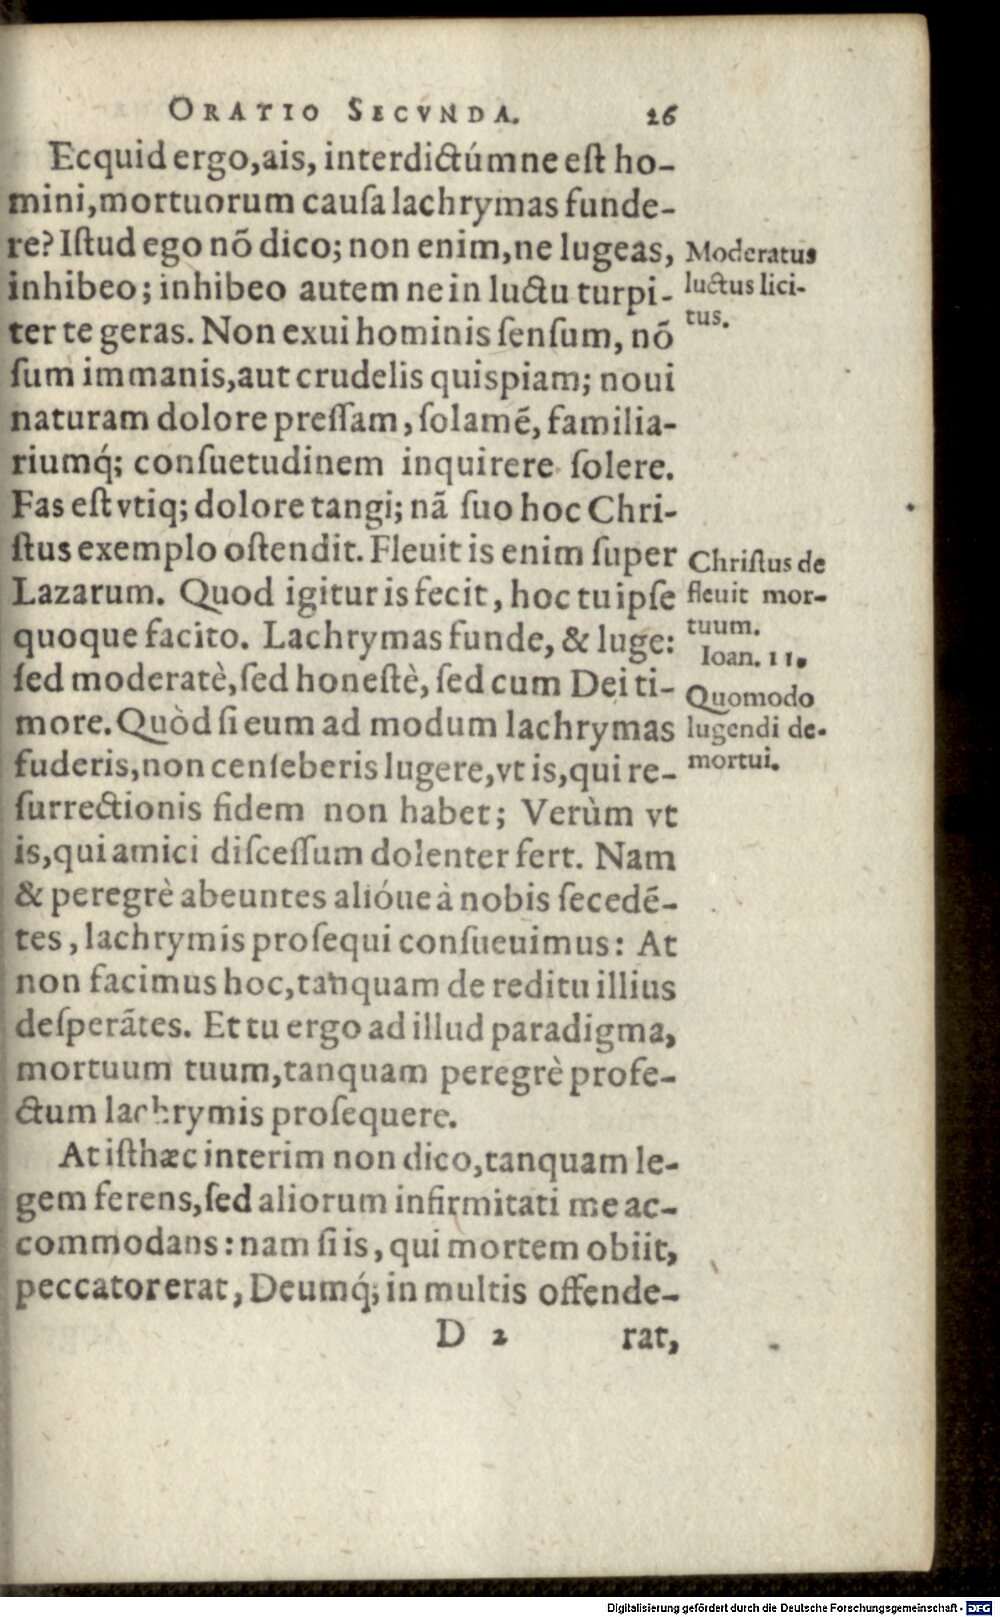 ORATIO SECVNDA. 26
Ecquid ergo, ais, interdictúmne est ho-
mini, mortuorum causa lachrymas funde-
re? Istud ego nõ dico; non enim, ne lugeas,
inhibeo; inhibeo autem ne in luctu turpi-
ter te geras. Non exui hominis sensum, nõ
sum immanis, aut crudelis quispiam; noui
naturam dolore pressam, solamẽ, familia-
riumq́; consuetudinem inquirere solere.
Fas est vtiq; dolore tangi; nã suo hoc Chri-
stus exemplo ostendit. Fleuit is enim super
Lazarum. Quod igitur is fecit, hoc tu ipse
quoque facito. Lachrymas funde, & luge:
sed moderatè, sed honestè, sed cum Dei ti-
more. Quòd si eum ad modum lachrymas
fuderis, non censeberis lugere, vt is, qui re-
surrectionis fidem non habet; Verùm vt
is, qui amici discessum dolenter fert. Nam
& peregrè abeuntes alióue à nobis secedẽ-
tes, lachrymis prosequi consueuimus: At
non facimus hoc, tanquam de reditu illius
desperãtes. Et tu ergo ad illud paradigma,
mortuum tuum, tanquam peregrè profe-
ctum lachrymis prosequere.
At isthæc interim non dico, tanquam le-
gem ferens, sed aliorum infirmitati me ac-
commodans: nam si is, qui mortem obiit,
peccator erat, Deumq́; in multis offende-
D 2 rat,
Moderatus
luctus lici-
tus.
Christus de
fleuit mor-
tuum.
Ioan. 11.
Quomodo
lugendi de-
mortui.
Digitalisierung gefördert durch die Deutsche Forschungsgemeinschaft - DFG